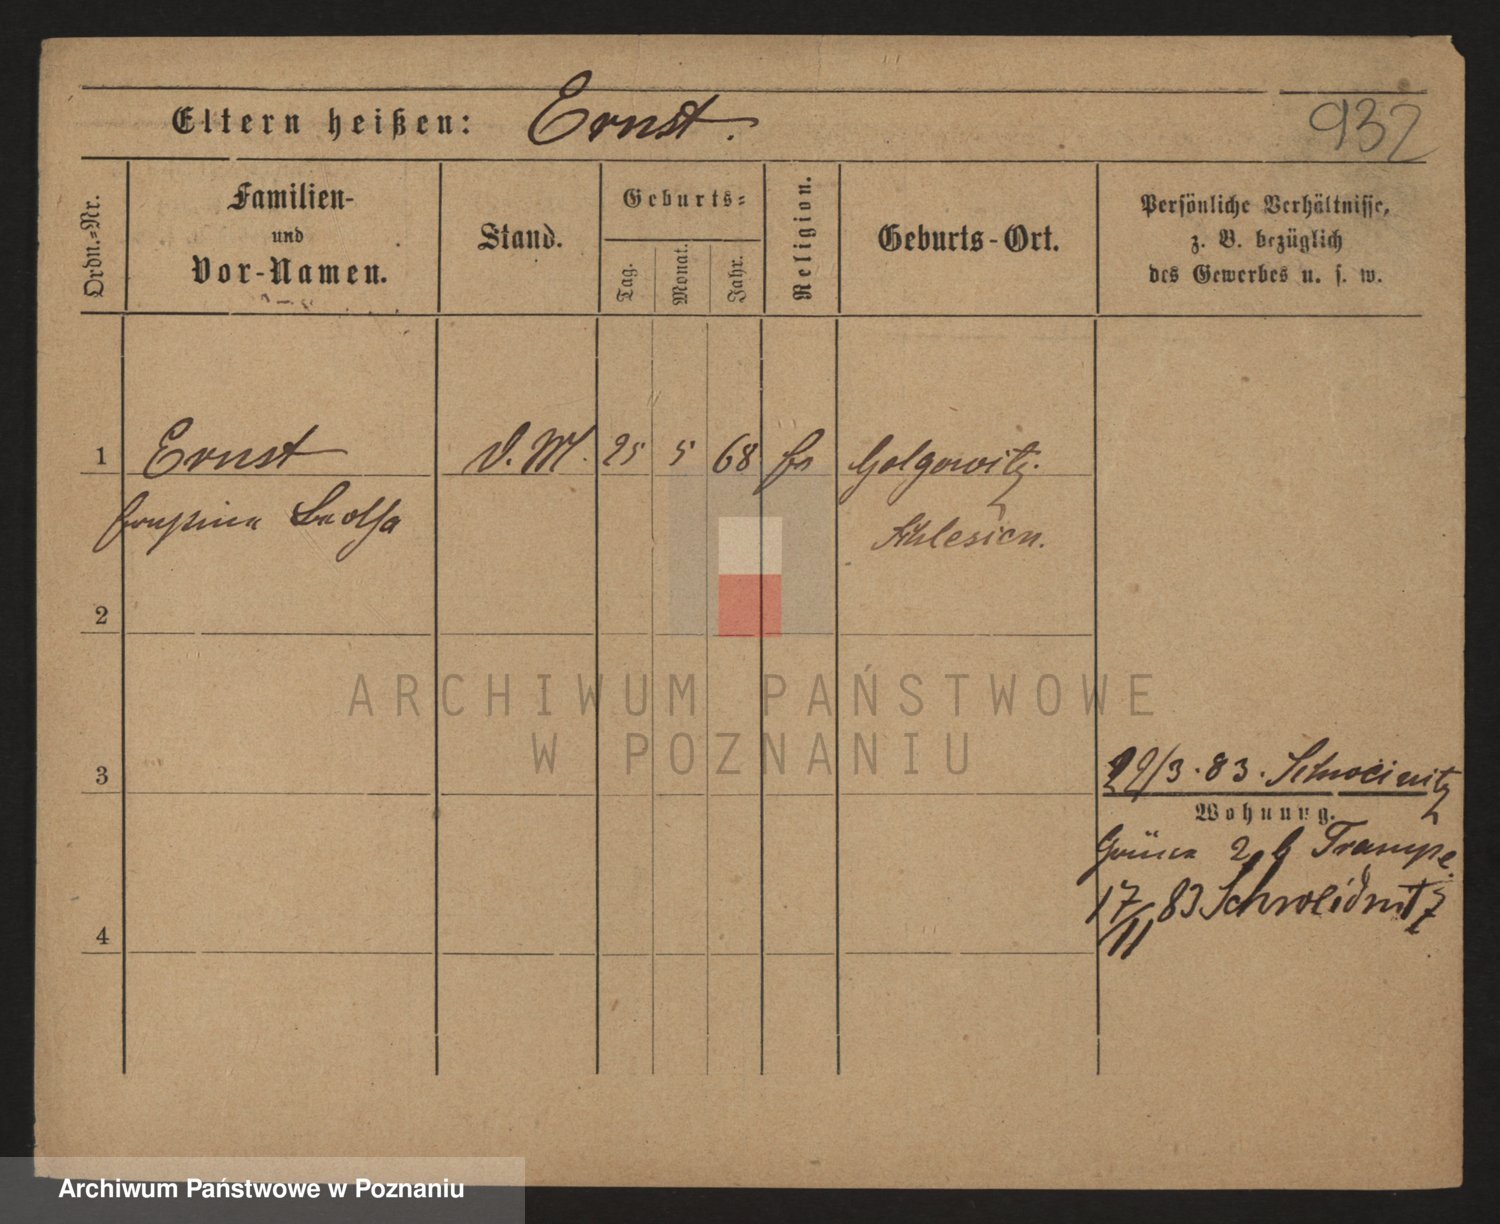 Eltern heißen: Ernst.
932
Ordn.=Nr.
Familien-
und
Vor-Namen.
Stand.
Geburts=
Tag.
Monat.
Jahr.
Religion.
Geburts-Ort.
Persönliche Verhältnisse,
z. B. bezüglich
des Gewerbes u. s. w.
1 Ernst D.M. 25 5 68
Schlesien.
2
ARCHIWUM PAŃSTWOWE
W POZNANIU
3
/3.83.
Wohnung.
Trampe
4
17/11 83 Schweidnitz
Archiwum Państwowe w Poznaniu